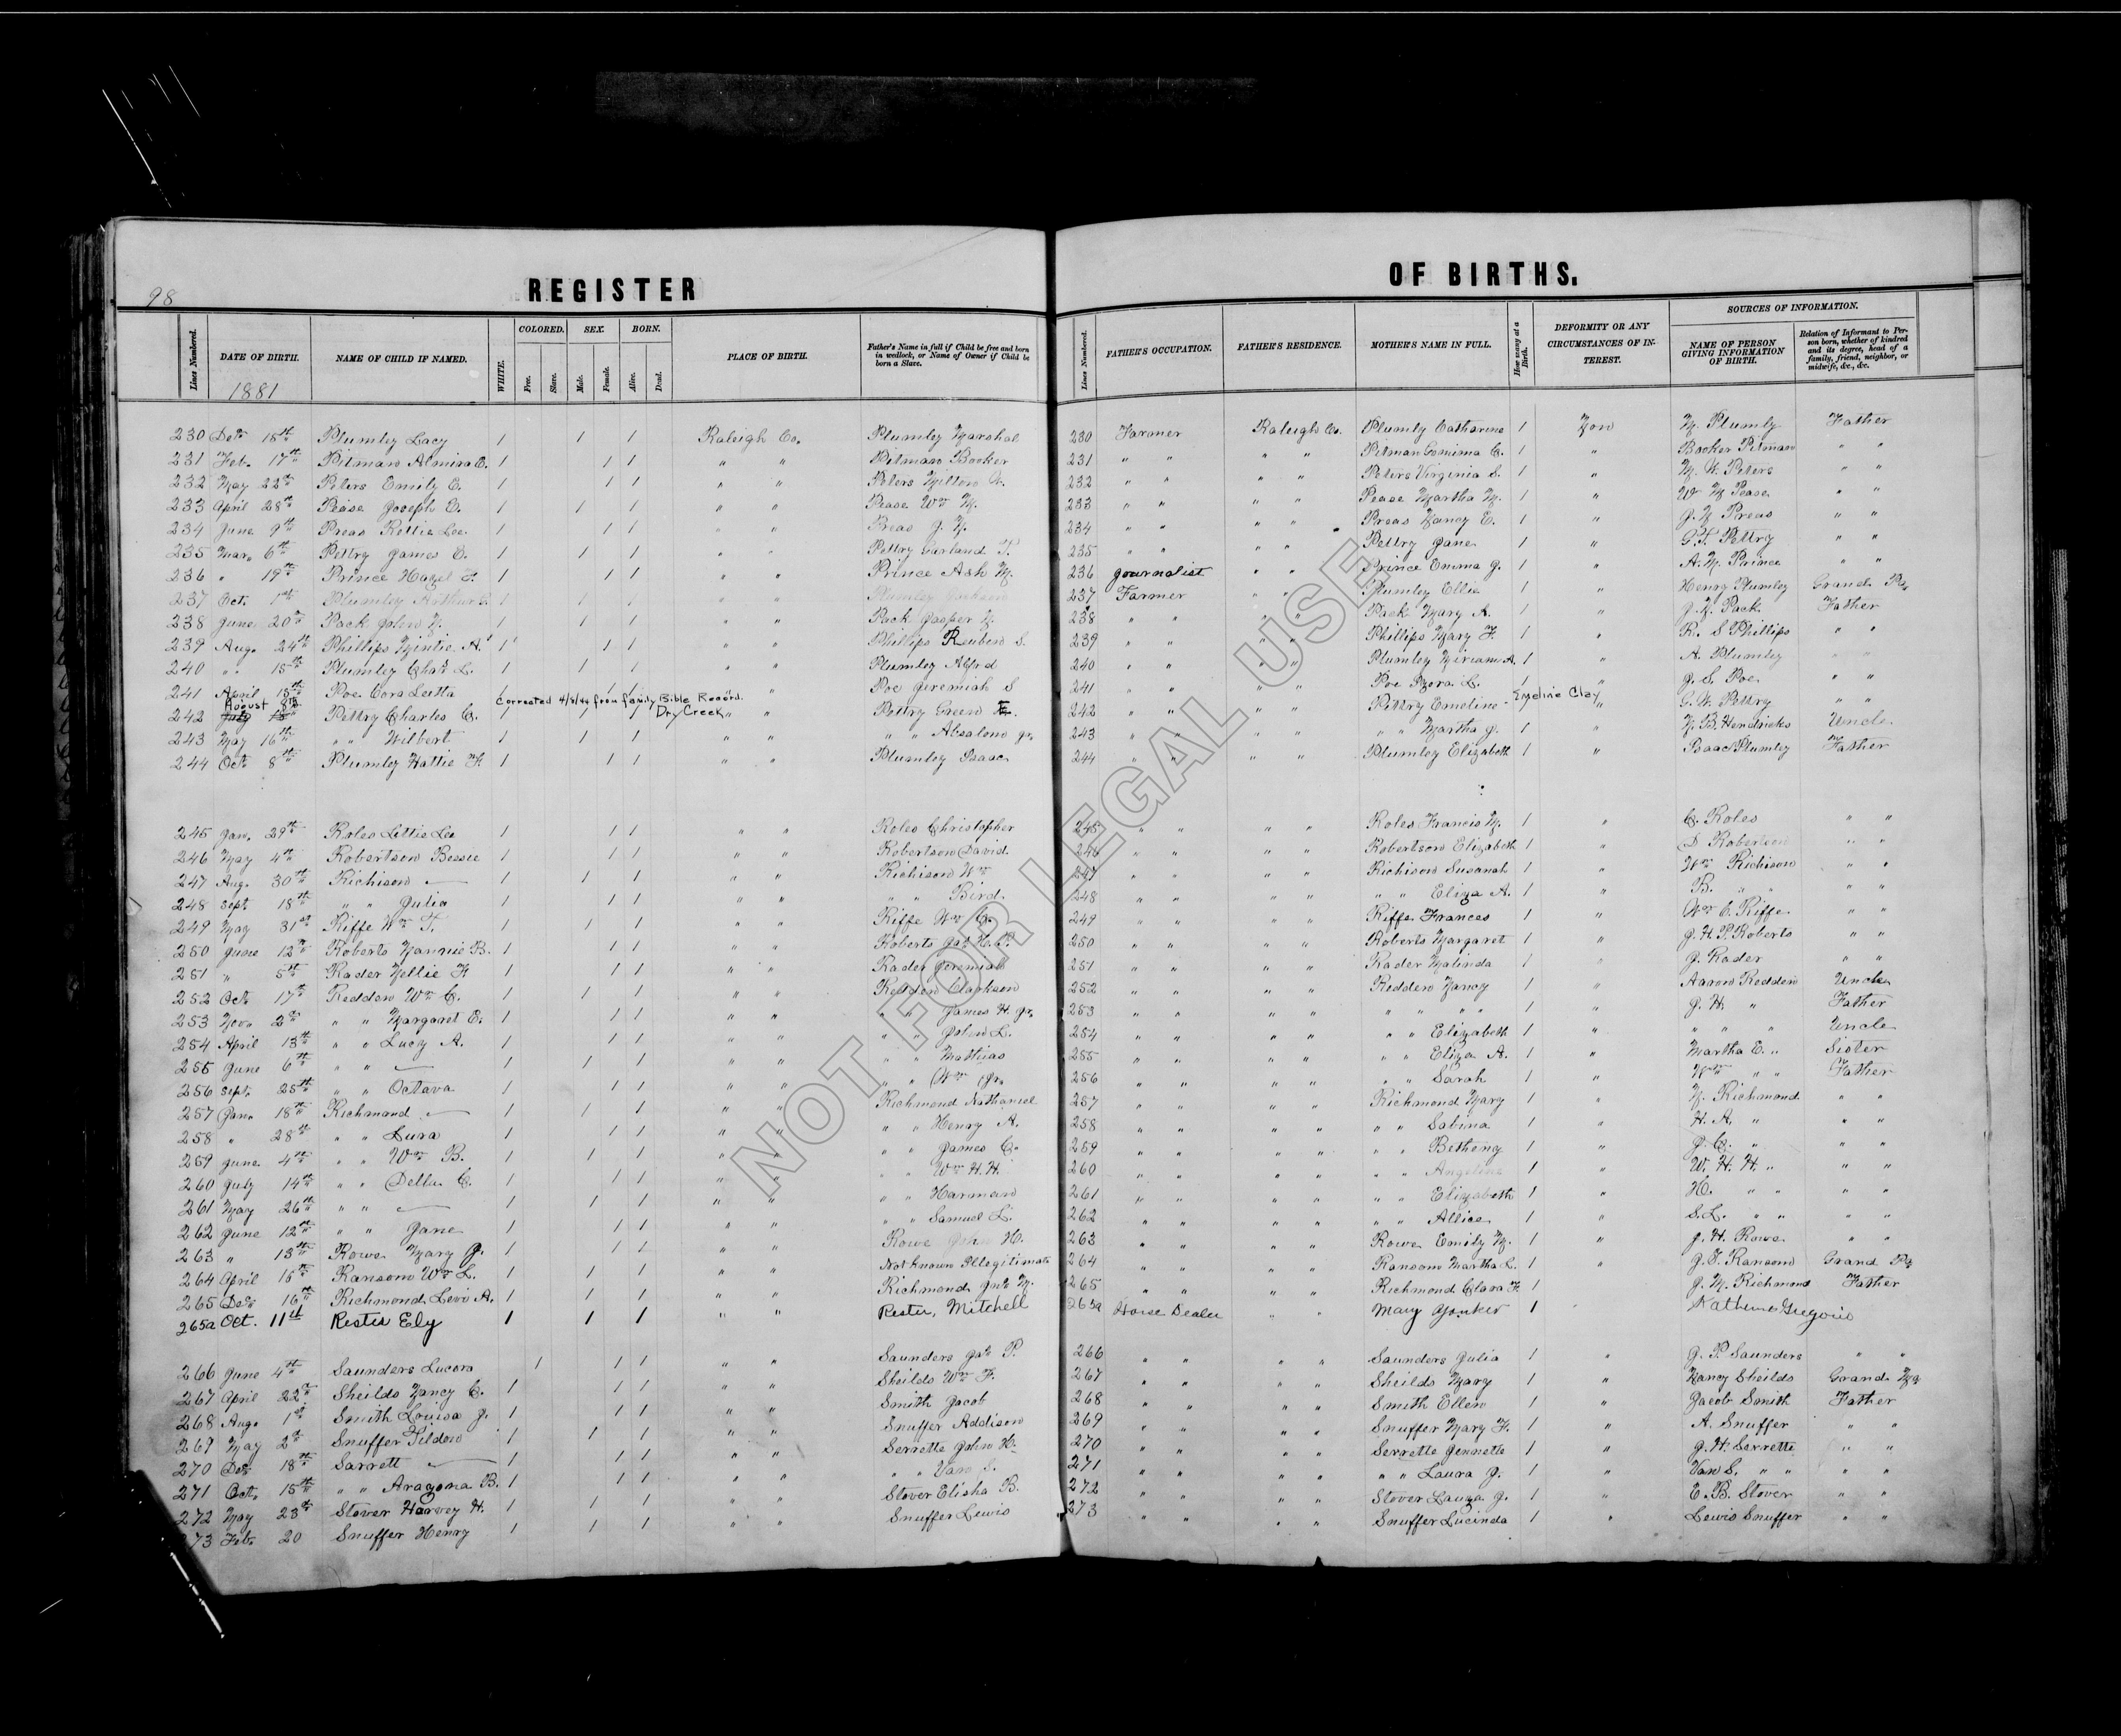 98
REGISTER OF BIRTHS.
Lines Numbered. DATE OF BIRTH. NAME OF CHILD IF NAMED. WHITE. COLORED. Free. Slave. SEX. Male. Female. BORN. Alive. Dead. PLACE OF BIRTH. Father's Name in full if Child be free and born in wedlock, or Name of Owner if Child be born a Slave. Lines Numbered. FATHER'S OCCUPATION. FATHER'S RESIDENCE. MOTHER'S NAME IN FULL. How many at a Birth. DEFORMITY OR ANY CIRCUMSTANCES OF INTEREST. SOURCES OF INFORMATION. NAME OF PERSON GIVING INFORMATION OF BIRTH. Relation of Informant to Person born, whether of kindred and its degree, head of a family, friend, neighbor, or midwife, &c., &c.
1881
230 Decr 18th Plumley Lacy 1 1 1 Raleigh Co. Plumley Marshal 230 Farmer Raleigh Co. Plumly Catharine 1 Non M. Plumly Father
231 Feb. 17th Pitman Almira C. 1 1 1 " " Pitman Booker 231 " " " " Pitman C. 1 " Booker Pitman " "
232 May 22nd Peters Emily E. 1 1 1 " " Peters Milton W. 232 " " " " Peters Virginia S. 1 " M. W. Peters " "
233 April 28th Pease Joseph C. 1 1 1 " " Pease Wm M. 233 " " " " Pease Martha M. 1 " W M Pease " "
234 June 9th Preas Rottie Lee 1 1 1 " " Preas J. M. 234 " " " " Preas Nancy E. 1 " J. M Preas " "
235 Mar. 6th Pettry James E. 1 1 1 " " Pettry Garland T. 235 " " " " Pettry Jane 1 " G. T. Pettry " "
236 " 19th Prince Hazel F. 1 1 1 " " Prince Ash M. 236 Journalist " " Prince Emma J. 1 " A. M. Prince " "
237 Oct. 1st Plumley Arthur 1 1 1 " " Plumley 237 Farmer " " Plumley Ellie 1 " Henry Plumley Grand Pa
238 June 20th Pack John M. 1 1 1 " " Pack Jasper N. 238 " " " " Pack Mary A. 1 " J. N. Pack Father
239 Aug. 24th Phillips Mintie A. 1 1 1 " " Phillips Reuben S. 239 " " " " Phillips Mary F. 1 " R. S Phillips " "
240 " " 15th Plumley Chas L. 1 1 1 " " Plumley Alfred 240 " " " " Plumley Miriam A. 1 " A. Plumley " "
241 April 18th Poe Cora Leutta 1 1 1 " Poe Jeremiah S 241 " " " " Poe L. 1 " J. S. Poe " "
August 8th Corrected 4/8/40 from family Bible Record. Emeline Clay
242 July Pettry Charles C. 1 1 1 Dry Creek " " Pettry Green E. 242 " " " " Pettry Emeline " G. W. Pettry " "
243 May 16th " " Wilbert 1 1 1 " " " " Absalom Jr. 243 " " " " " " Martha J. 1 " M. B. Hendricks Uncle
244 Oct. 8th Plumley Hattie F. 1 1 1 " " Plumley Isaac 244 " " " " Plumley Elizabeth 1 " Isaac Plumley Father
245 Jan. 29th Roles Lettie Lee 1 1 1 " " Roles Christopher 245 " " " " Roles Francis M. 1 " C. Roles " "
246 May 4th Robertson Bessie 1 1 1 " " Robertson David 246 " " " " Robertson Elizabeth 1 " D Robertson " "
247 Aug. 30th Richison 1 1 1 " " Richison Wm 247 " " " " Richison Susanah 1 " Wm Richison " "
248 Sept 18th " " Julia 1 1 1 " " " " Bird 248 " " " " " " Eliza A. 1 " B. " " " "
249 May 31st Riffe Wm T. 1 1 1 " " Riffe Wm C. 249 " " " " Riffe Frances 1 " Wm C. Riffe " "
250 June 12th Roberts Nannie B. 1 1 1 " " Roberts Jas H. P. 250 " " " " Roberts Margaret 1 " J. H. P. Roberts " "
251 " 5th Rader Nellie F 1 1 1 " " Rader Jeremiah 251 " " " " Rader Malinda 1 " J. Rader " "
252 Oct. 17th Redden Wm C. 1 1 1 " " Redden Clarkson 252 " " " " Redden Nancy 1 " Aaron Redden Uncle
253 Nov. 2nd " " Margaret E. 1 1 1 " " " James H. Jr. 253 " " " " " " " " 1 " J. H. " Father
254 April 13th " " Lucy A. 1 1 1 " " " " John L. 254 " " " " " " Elizabeth 1 " " " " Uncle
255 June 6th " " 1 1 1 " " " " Mathias 255 " " " " " " Eliza A. 1 " Martha E. " Sister
256 Sept. 25th " " Octava 1 1 1 " " " " Wm Jr. 256 " " " " " " Sarah 1 " Wm " " Father
257 Jan. 18th Richmond 1 1 1 " " Richmond Nathaniel 257 " " " " Richmond Mary 1 " N. Richmond " "
258 " 28th " " Lura 1 1 1 " " " " Henry A. 258 " " " " " " Sabina 1 " H. A. " " "
259 June 4th " " Wm B. 1 1 1 " " " " James C. 259 " " " " " " Betheny 1 " J. C. " " "
260 July 14th " " Della C. 1 1 1 " " " " Wm H. H. 260 " " " " " " Angeline 1 " W. H. H. " " "
261 May 26th " " 1 1 1 " " " " Harman 261 " " " " " " Elizabeth 1 " H. " " " "
262 June 12th " " Jane 1 1 1 " " " " Samuel L. 262 " " " " " " Allice 1 " S. L. " " " "
263 " 13th Rowe Mary J. 1 1 1 " " Rowe John H. 263 " " " " Rowe Emily M. 1 " J. H. Rowe " "
264 April 16th Ransom Wm L. 1 1 1 " " Not Known Illegitimate 264 " " " " Ransom Martha L. 1 " J. S. Ransom Grand Pa
265 Decr 16th Richmond Levi A. 1 1 1 " " Richmond Jno M. 265 " " " " Richmond Clara F. 1 J. M. Richmond Father
265a Oct. 11th Rester Ely 1 1 1 " " Rester, Mitchell 265a Horse Dealer " " Mary Yonker 1 " Katherine Gregorio
266 June 4th Saunders Lucora 1 1 1 " " Saunders Jas P. 266 " " " " Saunders Julia 1 " J. P. Saunders " "
267 April 22nd Sheilds Nancy C. 1 1 1 " " Sheilds Wm F. 267 " " " " Sheilds Mary 1 " Nancy Sheilds Grand Ma
268 Aug. 1st Smith Louisa J. 1 1 1 " " Smith Jacob 268 " " " " Smith Ellen 1 " Jacob Smith Father
269 May 2nd Snuffer Tilden 1 1 1 " " Snuffer Addison 269 " " " " Snuffer Mary F. 1 " A. Snuffer " "
270 Decr 18th Sarrett 1 1 1 " " Serrette John H. 270 " " " " Serrette Jennette 1 " J. H. Serrette " "
271 Oct. 15th " " Aragona B. 1 1 1 " " " " Van S. 271 " " " " " " Laura J. 1 " Van S. " " " "
272 May 23rd Stover Harvey H. 1 1 1 " " Stover Elisha B. 272 " " " " Stover Lauza J. 1 " E. B. Stover " "
273 Feb. 20 Snuffer Henry 1 1 1 " " Snuffer Lewis 273 " " " " Snuffer Lucinda 1 " Lewis Snuffer " "
NOT FOR LEGAL USE